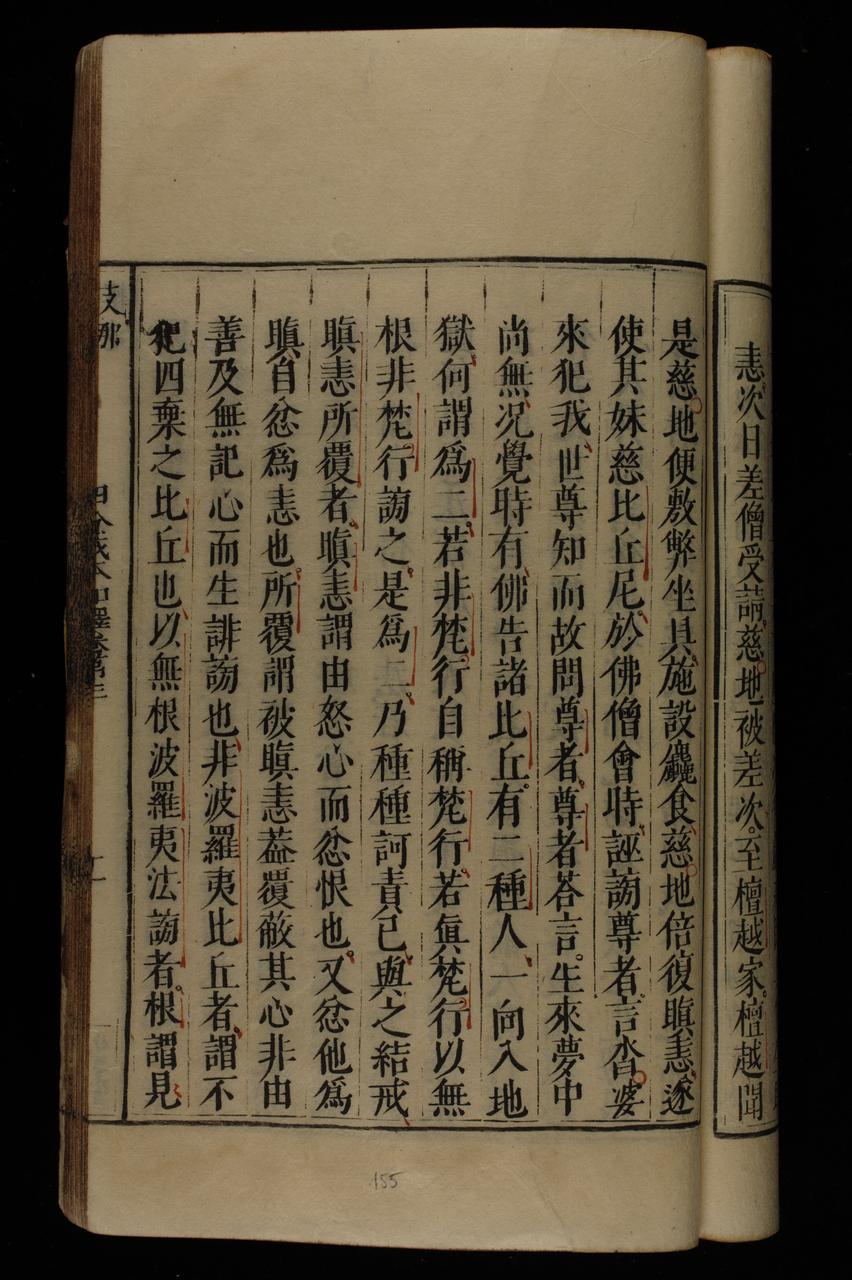 恚次日差僧受請慈地被差次至檀越家檀越聞
是慈地便敷弊坐具施設麤食慈地倍復瞋恚遂
使其妹慈比丘尼於佛僧會時誣謗尊者言沓婆
來犯我世尊知而故問尊者尊者荅言生來夢中
尚無況覺時有佛告諸比丘有二種人一向入地
獄何謂爲二若非梵行自稱梵行若眞梵行以無
根非梵行謗之是爲二乃種種訶責已與之結戒
瞋恚所覆者瞋恚謂由怒心而忿恨也又忿他爲
瞋自忿爲恚也所覆謂被瞋恚葢覆蔽其心非由
善及無記心而生誹謗也非波羅夷比丘者謂不
犯四棄之比丘也以無根波羅夷法謗者根謂見
支那
155